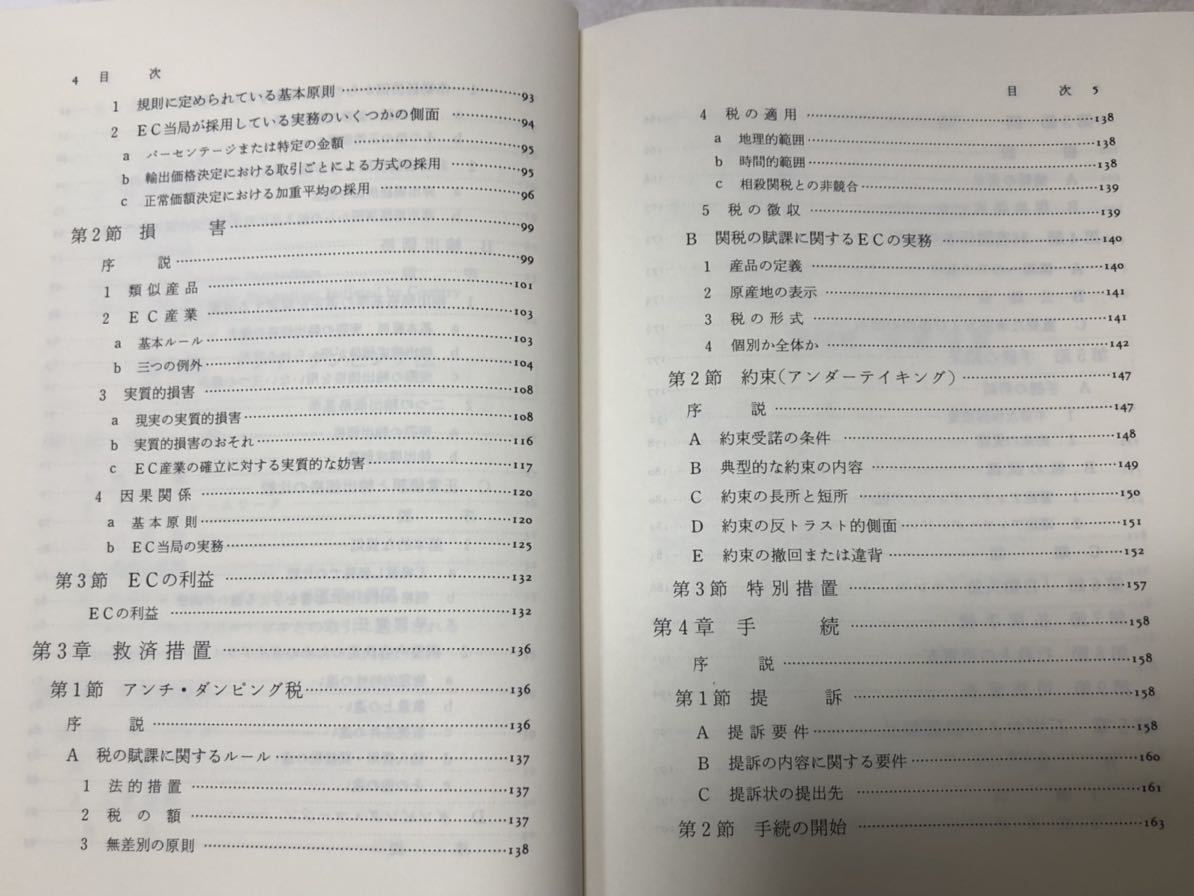 4 目 次
1 規則に定められている基本原則……93
2 EC当局が採用している実務のいくつかの側面……94
a パーセンテージまたは特定の金額……95
b 輸出価格決定における取引ごとによる方式の採用……95
c 正常価額決定における加重平均の採用……96
第2節 損 害……99
序 説……99
1 類似産品……101
2 EC産業……103
a 基本ルール……103
b 三つの例外……104
3 実質的損害……108
a 現実の実質的損害……108
b 実質的損害のおそれ……116
c EC産業の確立に対する実質的な妨害……117
4 因果関係……120
a 基本原則……120
b EC当局の実務……125
第3節 ECの利益……132
ECの利益……132
第3章 救済措置……136
第1節 アンチ・ダンピング税……136
序 説……136
A 税の賦課に関するルール……137
1 法的措置……137
2 税の額……137
3 無差別の原則……138
目 次 5
4 税の適用……138
a 地理的範囲……138
b 時間的範囲……138
c 相殺関税との非競合……139
5 税の徴収……139
B 関税の賦課に関するECの実務……140
1 産品の定義……140
2 原産地の表示……141
3 税の形式……141
4 個別か全体か……142
第2節 約束(アンダーテイキング)……147
序 説……147
A 約束受諾の条件……148
B 典型的な約束の内容……149
C 約束の長所と短所……150
D 約束の反トラスト的側面……151
E 約束の撤回または違背……152
第3節 特別措置……157
第4章 手 続……158
序 説……158
第1節 提 訴……158
A 提訴要件……158
B 提訴の内容に関する要件……160
C 提訴状の提出先……161
第2節 手続の開始……163